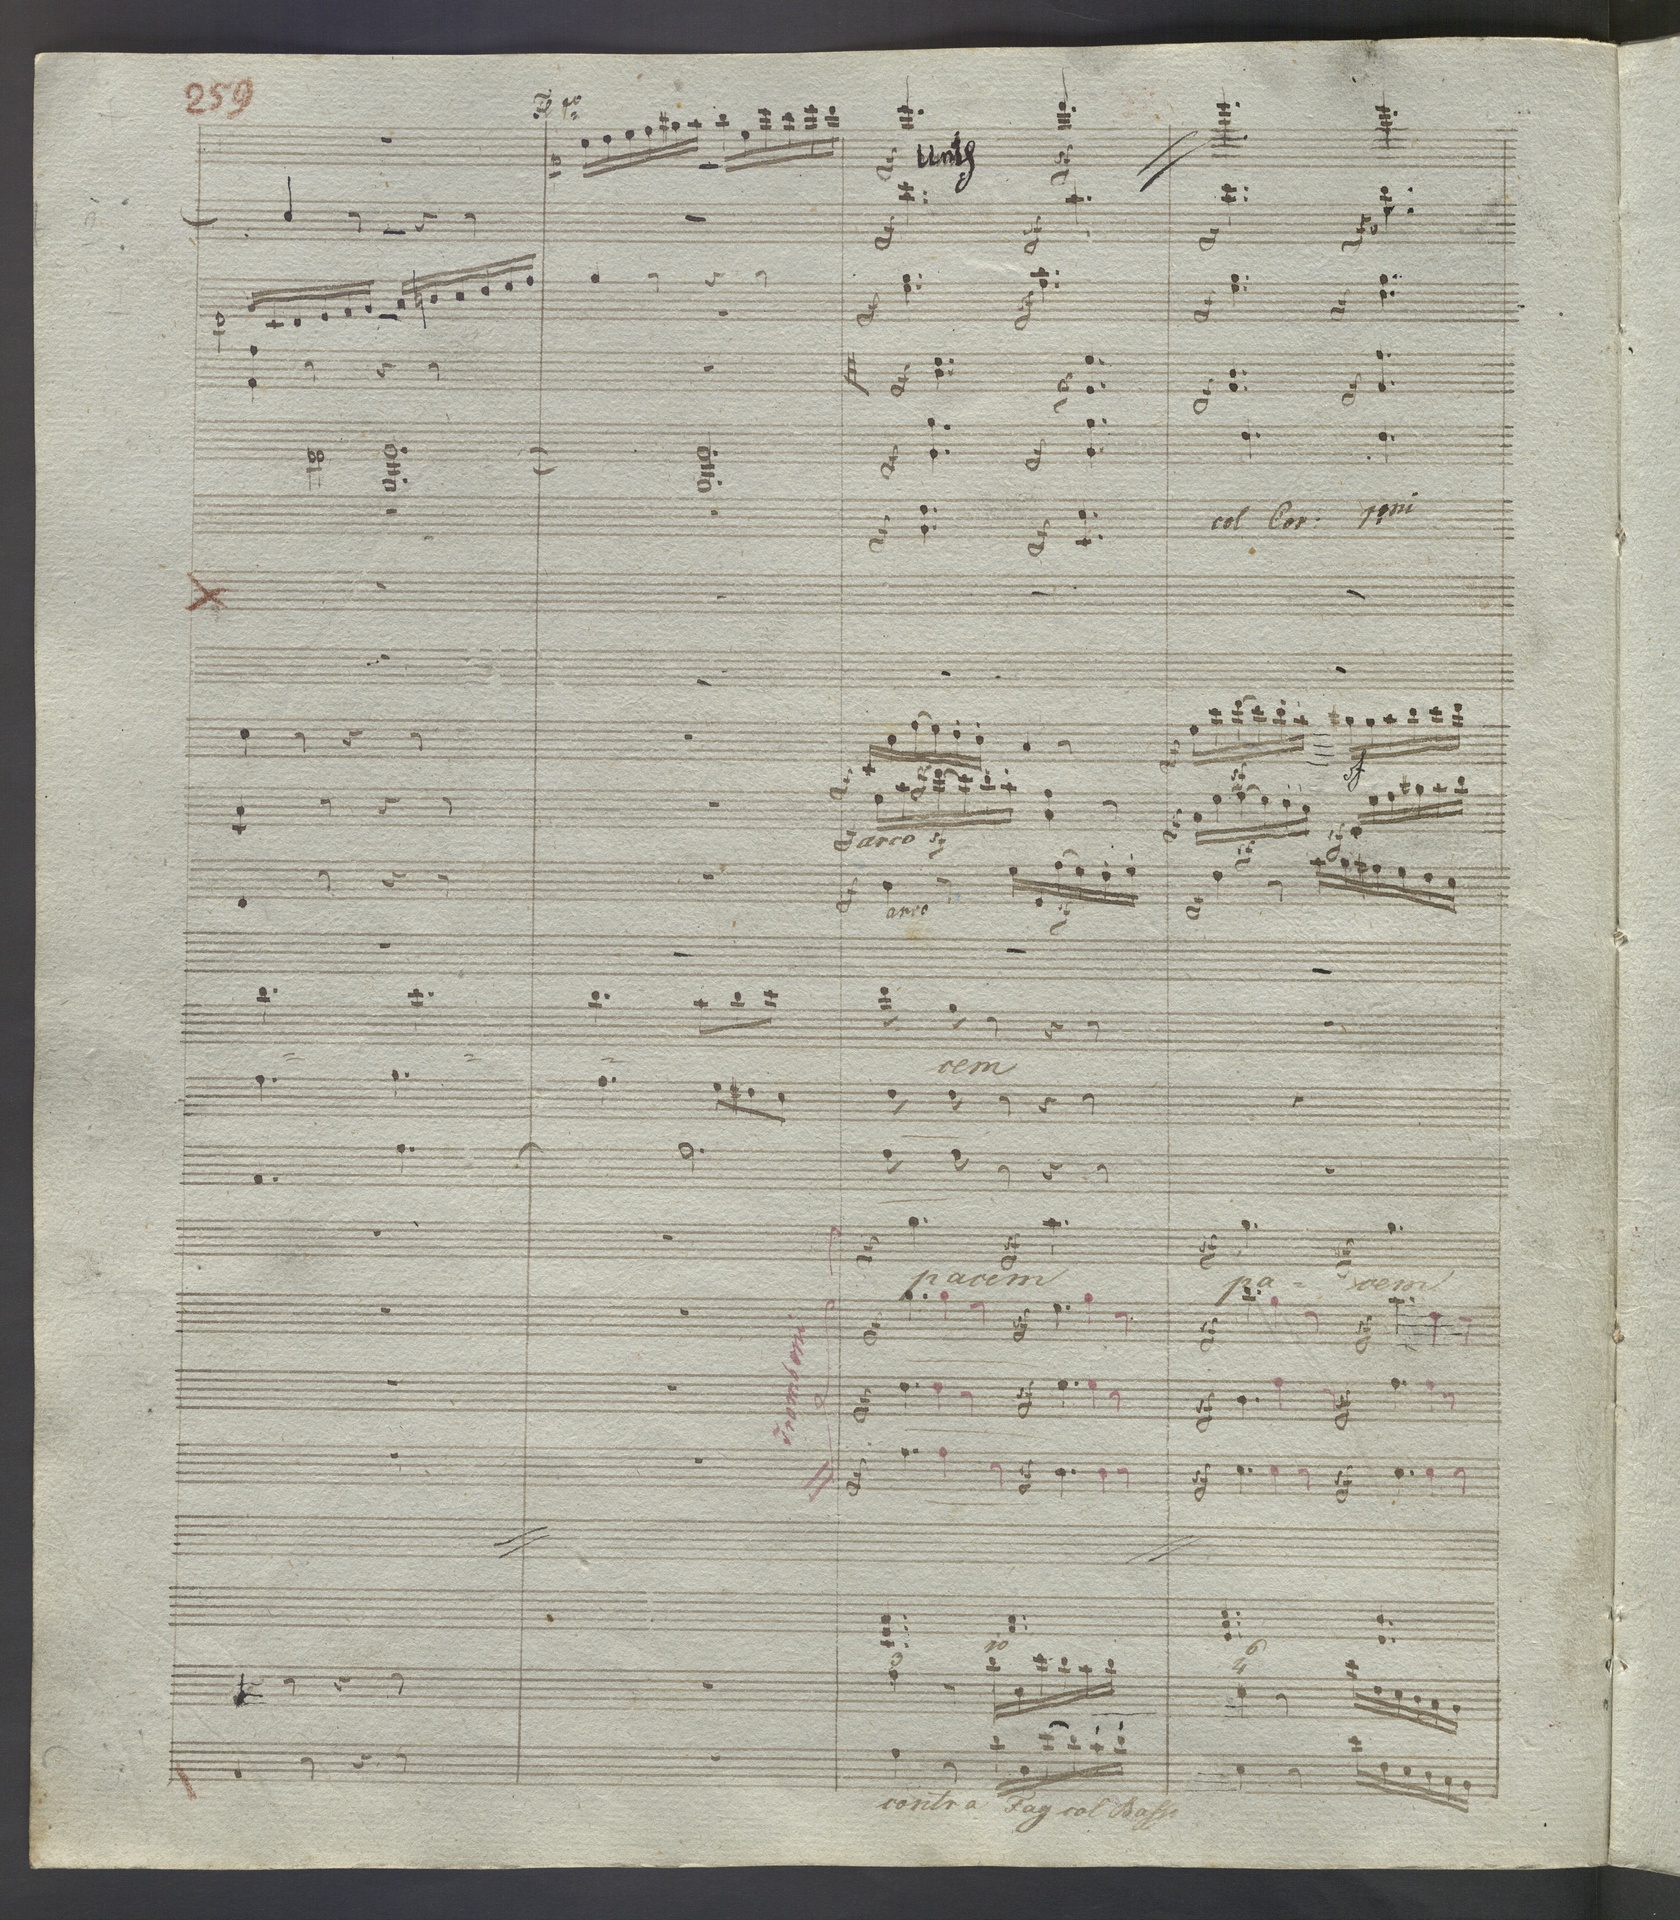 259
Unis
col Cor: 1mi
sf
arco
arco
cem
pacem pa = cem
Tromboni
10 6
4
contra Fag col Bassi